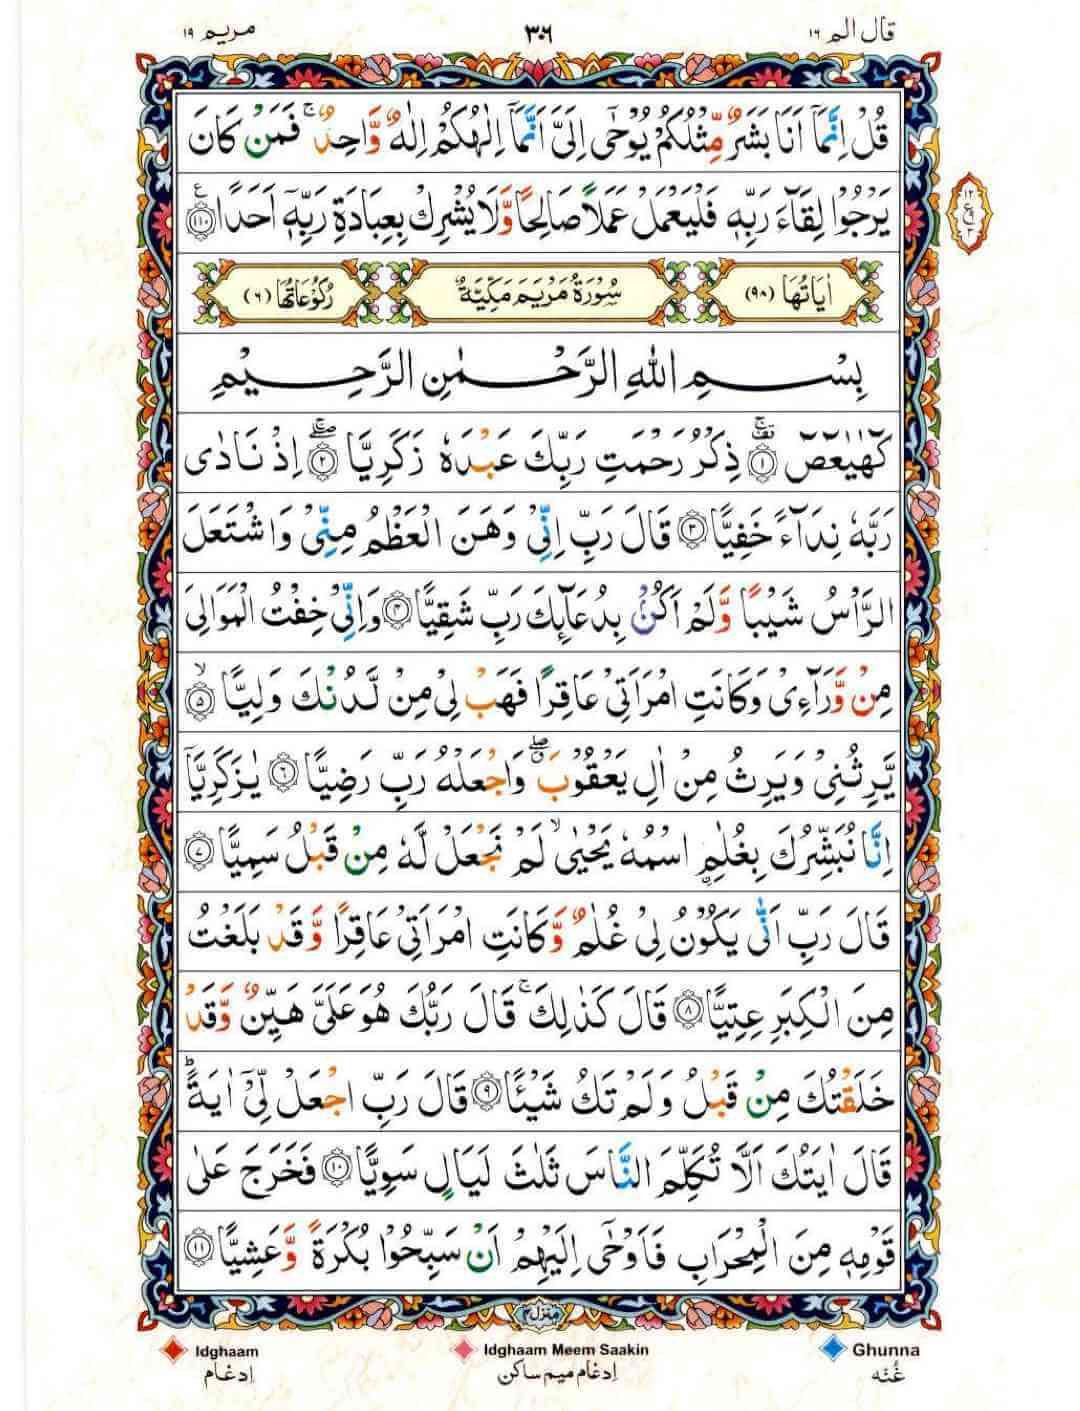 قال الم ١٦ ٣٠٦ مريم ١٩
قُلْ اِنَّمَاۤ اَنَا بَشَرٌ مِّثْلُكُمْ يُوْحٰۤى اِلَىَّ اَنَّمَاۤ اِلٰهُكُمْ اِلٰهٌ وَّاحِدٌ ۚ فَمَنْ كَانَ
يَرْجُوْا لِقَآءَ رَبِّهٖ فَلْيَعْمَلْ عَمَلًا صَالِحًا وَّلَا يُشْرِكْ بِعِبَادَةِ رَبِّهٖۤ اَحَدًا ﴿١١٠﴾ ع
١٢ ع ٣
اٰيَاتُهَا (٩٨) سُوْرَةُ مَرْيَمَ مَكِّيَّةٌ رُكُوْعَاتُهَا (٦)
بِسْمِ اللهِ الرَّحْمٰنِ الرَّحِيْمِ
كٓهٰيٰعٓصٓ ﴿١﴾ ذِكْرُ رَحْمَتِ رَبِّكَ عَبْدَهٗ زَكَرِيَّا ﴿٢﴾ اِذْ نَادٰى
رَبَّهٗ نِدَآءً خَفِيًّا ﴿٣﴾ قَالَ رَبِّ اِنِّىْ وَهَنَ الْعَظْمُ مِنِّىْ وَاشْتَعَلَ
الرَّاْسُ شَيْبًا وَّلَمْ اَكُنْۢ بِدُعَآئِكَ رَبِّ شَقِيًّا ﴿٤﴾ وَاِنِّىْ خِفْتُ الْمَوَالِىَ
مِنْ وَّرَآءِىْ وَكَانَتِ امْرَاَتِىْ عَاقِرًا فَهَبْ لِىْ مِنْ لَّدُنْكَ وَلِيًّا ﴿٥﴾ ۙ
يَّرِثُنِىْ وَيَرِثُ مِنْ اٰلِ يَعْقُوْبَ ۖ وَاجْعَلْهُ رَبِّ رَضِيًّا ﴿٦﴾ يٰزَكَرِيَّاۤ
اِنَّا نُبَشِّرُكَ بِغُلٰمِ اِۨسْمُهٗ يَحْيٰى ۙ لَمْ نَجْعَلْ لَّهٗ مِنْ قَبْلُ سَمِيًّا ﴿٧﴾
قَالَ رَبِّ اَنّٰى يَكُوْنُ لِىْ غُلٰمٌ وَّكَانَتِ امْرَاَتِىْ عَاقِرًا وَّقَدْ بَلَغْتُ
مِنَ الْكِبَرِ عِتِيًّا ﴿٨﴾ قَالَ كَذٰلِكَ ۚ قَالَ رَبُّكَ هُوَ عَلَىَّ هَيِّنٌ وَّقَدْ
خَلَقْتُكَ مِنْ قَبْلُ وَلَمْ تَكُ شَيْئًا ﴿٩﴾ قَالَ رَبِّ اجْعَلْ لِّىْۤ اٰيَةً ؕ
قَالَ اٰيَتُكَ اَلَّا تُكَلِّمَ النَّاسَ ثَلٰثَ لَيَالٍ سَوِيًّا ﴿١٠﴾ فَخَرَجَ عَلٰى
قَوْمِهٖ مِنَ الْمِحْرَابِ فَاَوْحٰۤى اِلَيْهِمْ اَنْ سَبِّحُوْا بُكْرَةً وَّعَشِيًّا ﴿١١﴾
منزل ٤
Idghaam Idghaam Meem Saakin Ghunna
اِدغام اِدغام ميم ساكن غُنّه